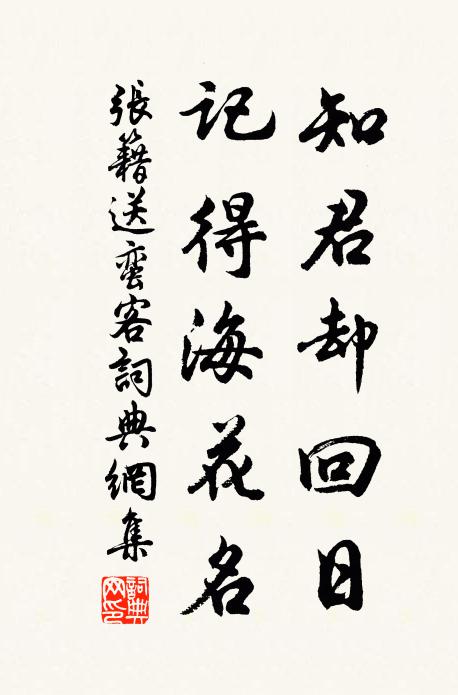 知君却回日
記得海花名
張籍送蠻客詞典網集
詞典
网印